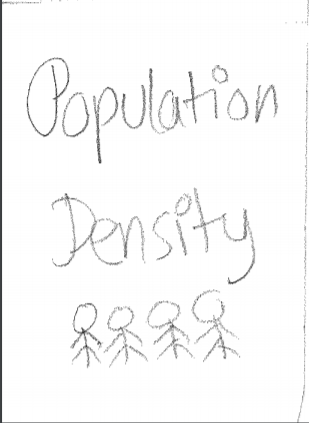 Population
Density